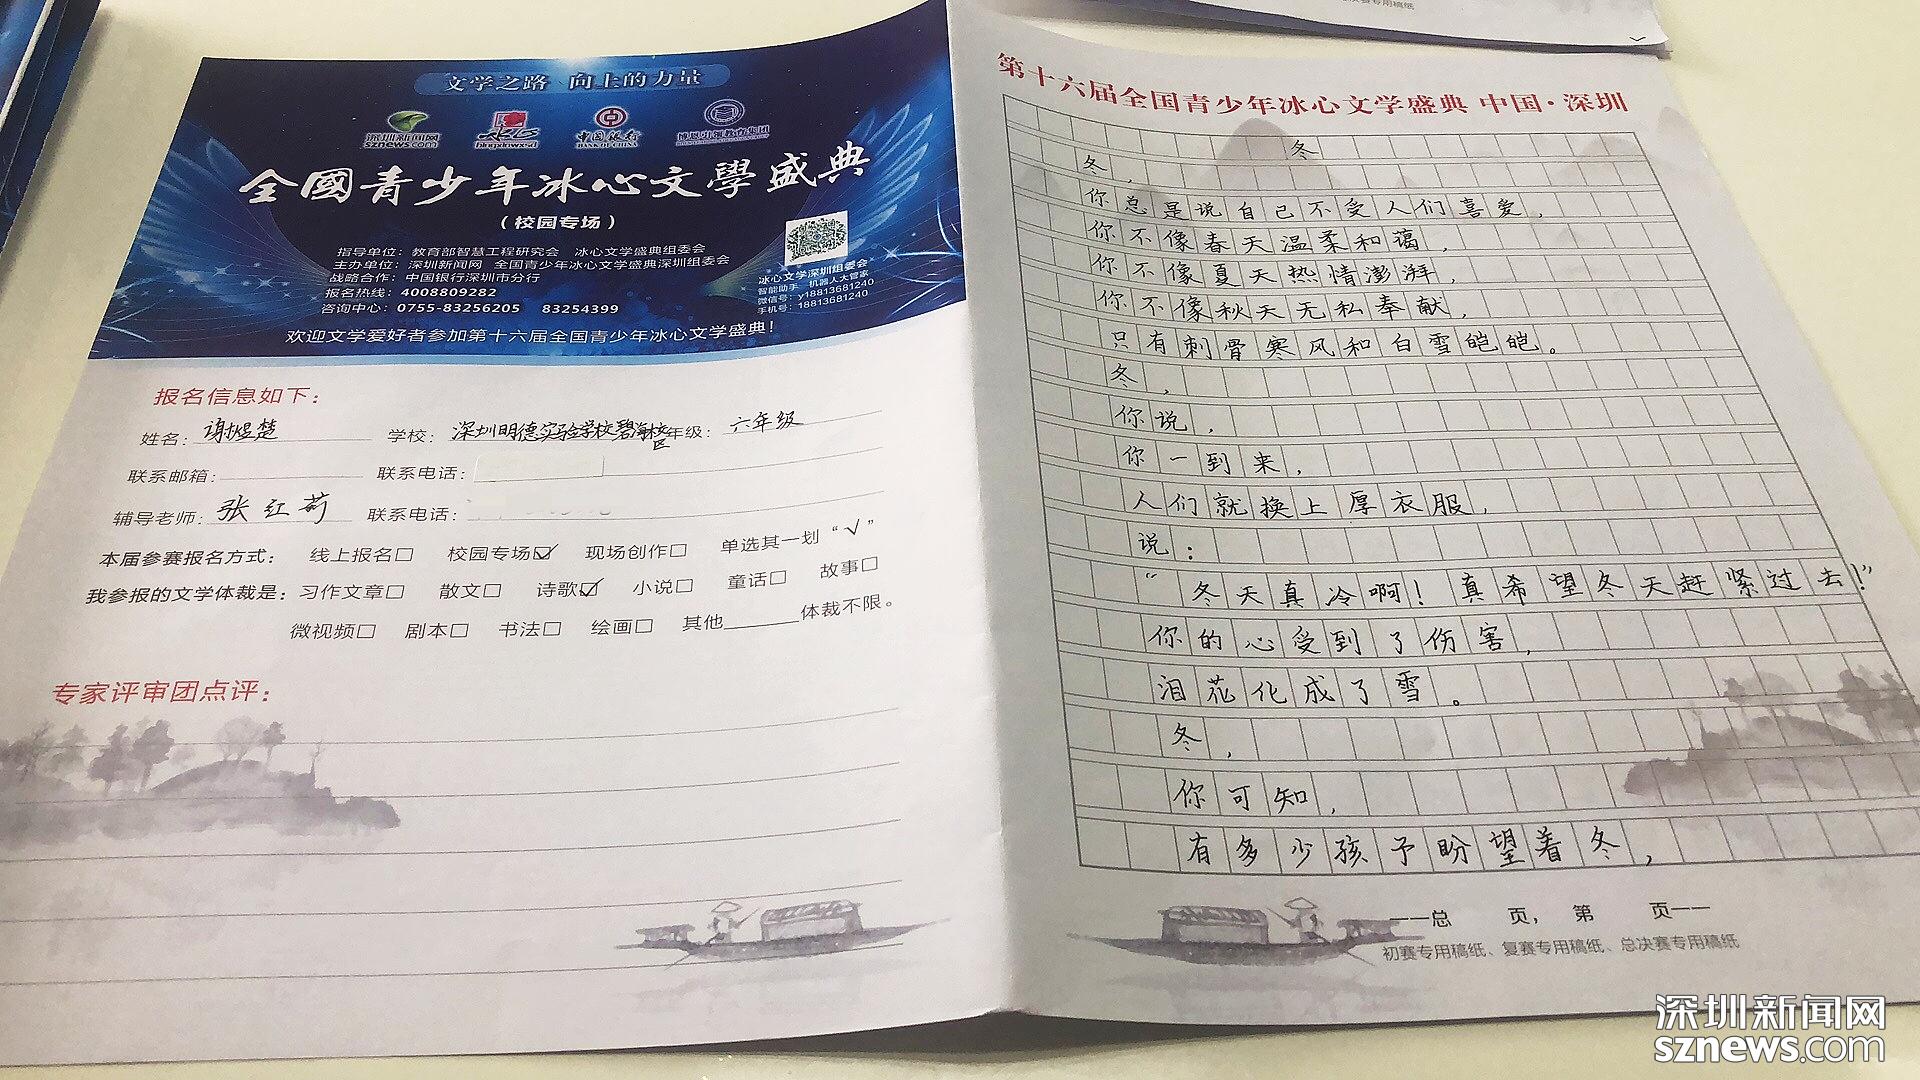 文学之路 向上的力量
深圳新闻网
sznews.com
中国银行
BANK OF CHINA
全國青少年冰心文學盛典
（校园专场）
指导单位：教育部智慧工程研究会 冰心文学盛典组委会
主办单位：深圳新闻网 全国青少年冰心文学盛典深圳组委会
战略合作：中国银行深圳市分行
报名热线：4008809282
咨询中心：0755-83256205 83254399
冰心文学深圳组委会
智能助手 机器人大管家
微信号：y18813681240
手机号：18813681240
欢迎文学爱好者参加第十六届全国青少年冰心文学盛典！
报名信息如下：
姓名：谢煜楚 学校：深圳明德实验学校碧海校区 年级：六年级
联系邮箱： 联系电话：
辅导老师：张红莉 联系电话：
本届参赛报名方式： 线上报名□ 校园专场☑ 现场创作□ 单选其一划“√”
我参报的文学体裁是：习作文章□ 散文□ 诗歌☑ 小说□ 童话□ 故事□
微视频□ 剧本□ 书法□ 绘画□ 其他______体裁不限。
专家评审团点评：
第十六届全国青少年冰心文学盛典 中国·深圳
冬
冬，
你总是说自己不受人们喜爱，
你不像春天温柔和蔼，
你不像夏天热情澎湃，
你不像秋天无私奉献，
只有刺骨寒风和白雪皑皑。
冬，
你说，
你一到来，
人们就换上厚衣服，
说：
“冬天真冷啊！真希望冬天赶紧过去！”
你的心受到了伤害，
泪花化成了雪。
冬，
你可知，
有多少孩子盼望着冬，
一一总 页，第 页一一
初赛专用稿纸、复赛专用稿纸、总决赛专用稿纸
深圳新闻网
sznews.com